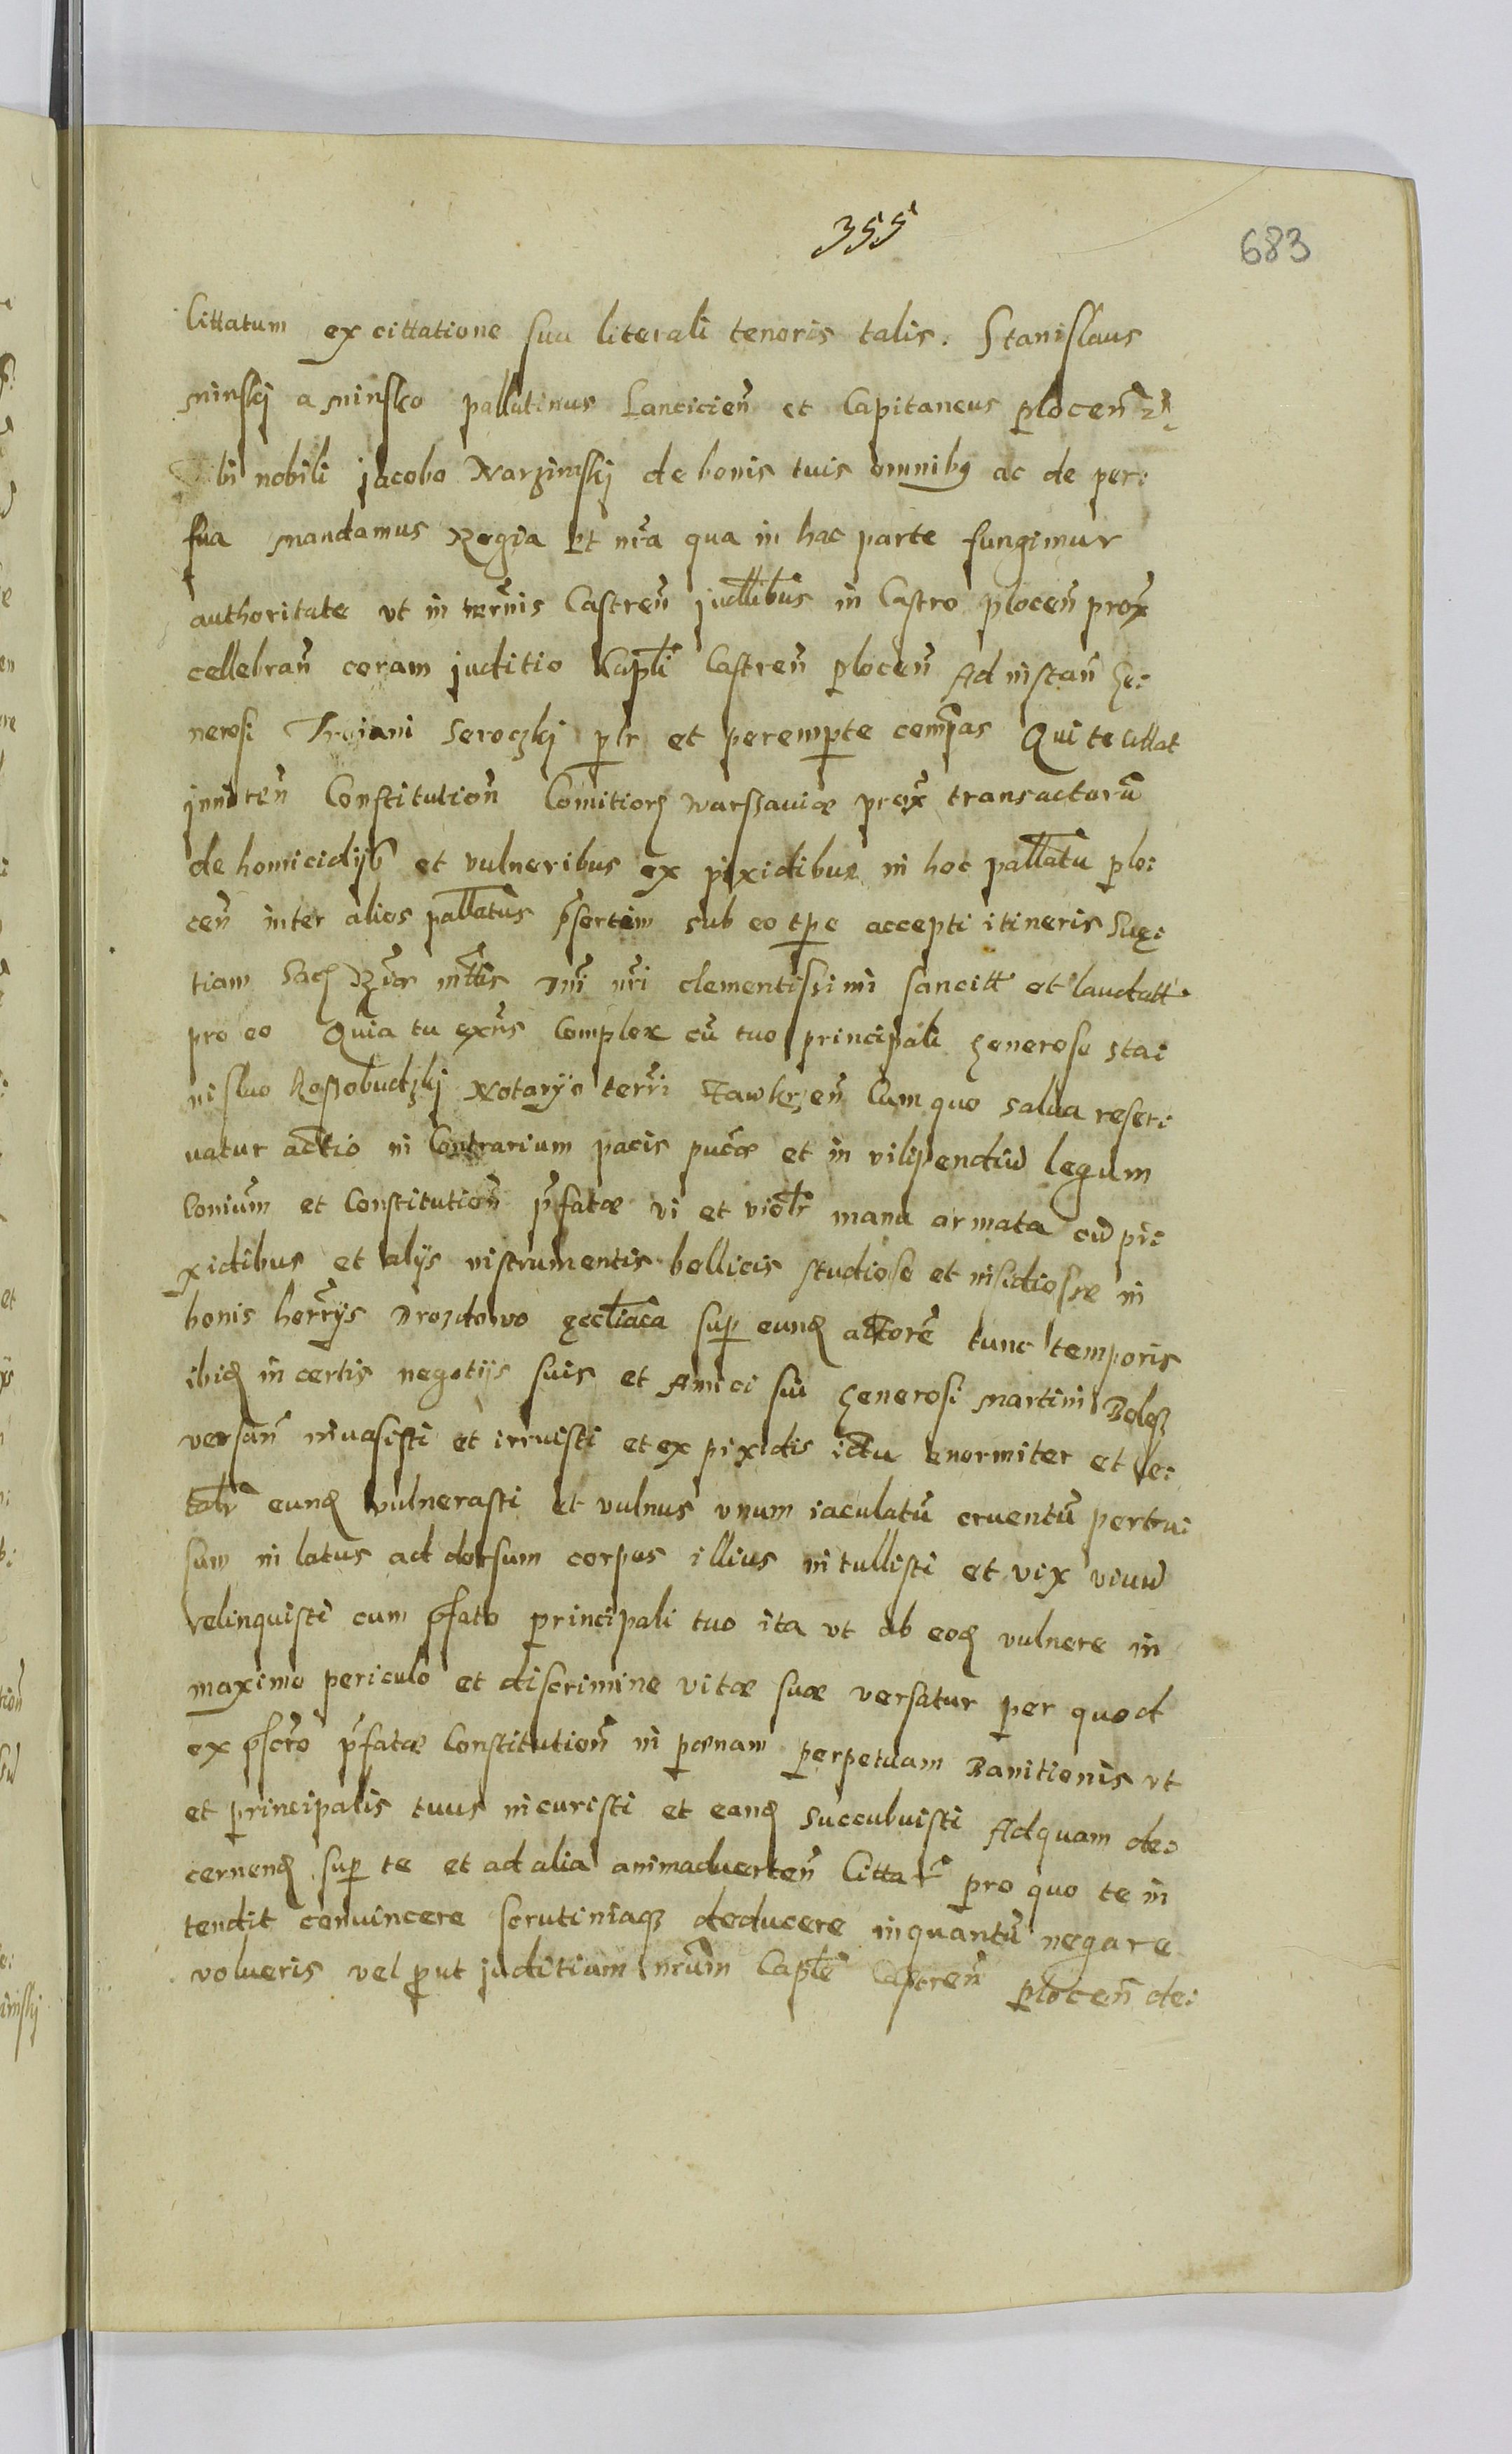 355
683
Cittatum ex cittatione sua literali tenoris talis. Stanislaus
Minskj a Minsko pallatinus Lancicien̄ et Capitaneus plocen̄
Tibi nobili jacobo Warzinskj de bonis tuis omnibꝯ ac de per:
sua mandamus Regia et nr̄a qua in hac parte fungimur
authoritate vt in ter̄nis Castren̄ judllibus in Castro plocen̄ prox̄
cellebran̄ coram juditio Capl̄i Castren̄ plocen̄ Ad instan̄ Ge:
nerosi Troiani Seroczkj pl̄r et perempte com̄pas Qui te cittat
Constitution̄ Comitiorꝝ Warssauiæ prox̄ transactorū
de homicidijs et vulneribus ex pixidibus in hoc pallātu plo:
cen̄ inter alios pallātus p̄sertim sub eo tp̄e accepti itineris Sue:
tiam Sac Rḡiæ mt̄tis Dn̄i nr̄i clementissimi sancitt et laudatt
pro eo Quia tu ex̄ns Complex cū tuo principali Generoso Sta:
nislao Kossobudzkj Notaryo terr̄i Zawkrzen̄ Cum quo salua reser:
uatur actio in Contrarium pacis pub̄cæ et in vilipendiū legum
Coniūm et Constitution̄ p̄fatæ vi et viol̄r manu armata cū pi:
xidibus et alijs instrumentis bellicis studiose et insidiosse in
bonis herr̄ijs Drozdowo super eund actorē tunc temporis
ibid in certis negotijs suis et Amici sui Generosi Martini Bolesz
versan̄ inuasisti et irruisti et ex pixidis ictu enormiter et le:
tal̄r eund vulnerasti et vulnus vnum iaculatū cruentū pertu:
sum in latus ad dorsum corpus illius intullisti et vix viuū
relinquisti cum p̄fato principali tuo ita vt ab eod vulnere in
maximo periculo et discrimine vitæ suæ versatur per quod
ex p̄scr̄o p̄fatæ Constitution̄ in pœnam perpetuam Banitionis vt
et principalis tuus incuristi et eand succubuisti Ad quam de:
cernend sup te et ad alia animaduerten̄ Cittar̄ pro quo te in
tendit conuincere scrutiniaqꝫ deducere inquantū negare
volueris vel prout juditium nr̄um Capl̄e Castren̄ plocen̄ de: